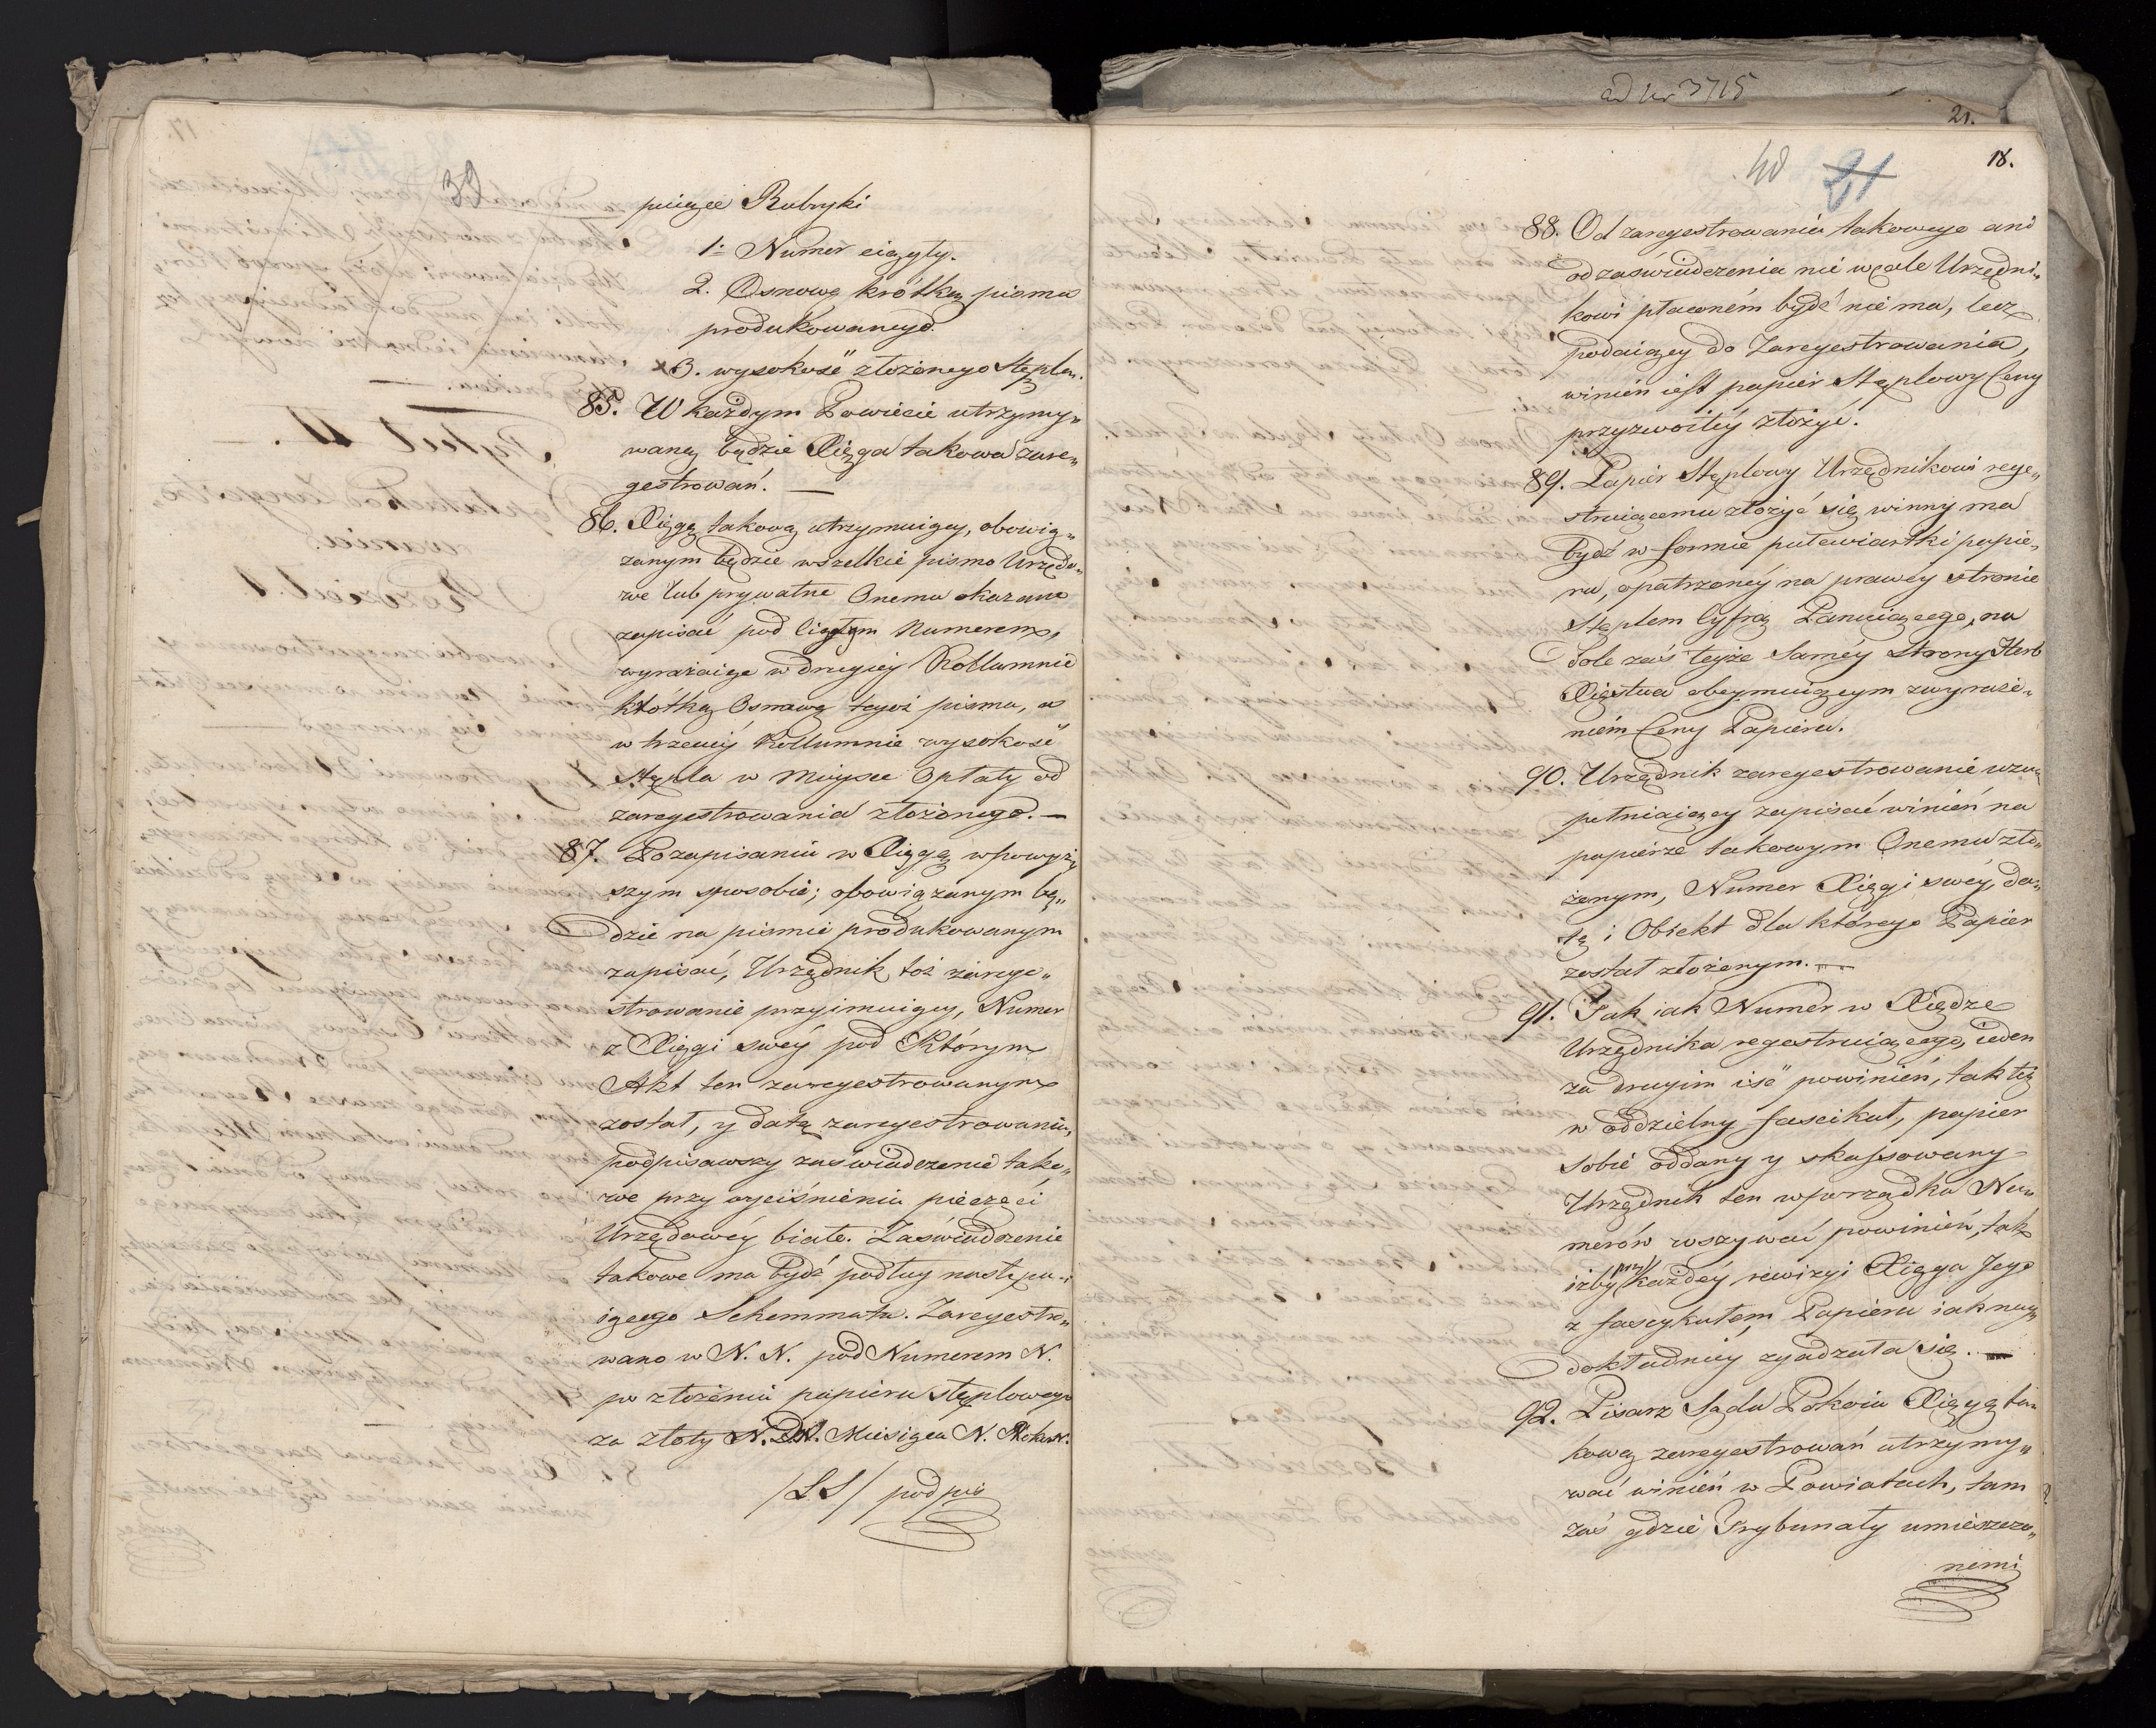 39
puiące Rubryki
1: Numer ciągły.
2. Osnowę krótką pisma
produkowanego
3. wysokość złożonego Stępla.
85. W każdym Powiecie utrzymy„
waną będzie Xięga takowa zare„
gestrowań. —
86. Xięgę takową utrzymuiący, obowią„
zanym będzie wszelkie pismo Urzędo„
we lub prywatne Onemu okazane
zapisać pod ciągłym Numerem,
wyrażaiąc w drugiey Kollumnie
krótką Osnowę tegoż pisma, a
w trzeciéy Kollumnie wysokość
Stępla w Mieysce Opłaty od
zaregestrowania złożonego. —
87. Po zapisaniu w Xięgę w powyż„
szym sposobie; obowiązanym bę„
dzie na piśmie produkowanym
zapisać, Urzędnik toż zarege„
strowanie przyimuiący, Numer
z Xięgi swéy pod Którym
Akt ten zaregestrowanym
został, y datę zaregestrowania,
podpisawszy zaświadczenie tako„
we przy wyciśnieniu pieczęci
Urzędowéy białe. Zaświadczenie
takowe ma bydź podług nastepu„
iącego Schemmatu. Zaregestro„
wano w N. N. pod Numerem N.
po złożeniu papieru stęplowego
za złoty N. D. N. Miesiąca N. Roku N.
/LS/ podpis
ad Nr 3715
21.
18.
40 21
88. Od zaregestrowania takowego ani
od zaświadczenia nic wcale Urzędni„
kowi płaconém bydź nie ma, lecz
podaiący do Zaregestrowania,
winien iest papier Stęplowy Ceny
przyzwoitéy złożyć.
89. Papier Stęplowy Urzędnikowi rege„
struiącemu złożyć się winny ma
bydź w formie półćwiartki papie„
ru, opatrzonéy na prawéy stronie
Stęplem Cyfrą Panuiącego, na
dole zaś teyże Saméy Strony Herb
Xięstwa obeymuiącym z wyraże„
niém Ceny Papieru.
90. Urzędnik zaregestrowanie uzu„
pełniaiący zapisać winień na
papierze takowym Onemu zło„
żonym, Numer Xięgi swéy, da„
tę i Obiekt dla którego Papier
został złożonym. —
91. Tak iak Numer w Xiędze
Urzędnika regestruiącego, ieden
za drugim iść powinień, tak też
w oddzielny fascikuł, papier
sobie oddany y skassowany
Urzędnik ten w porządku Nu„
merów wszywać powinień, tak
iżby przy każdéy rewizyi Xięga Jego
z fascykułem Papieru iak nay„
dokładniéy zgadzała się. —
92. Pisarz Sądu Pokoiu Xięgę ta„
kową zaregestrowań utrzymy„
wać winień w Powiatach, tam
zaś gdzie Trybunały umieszczo„
nemi